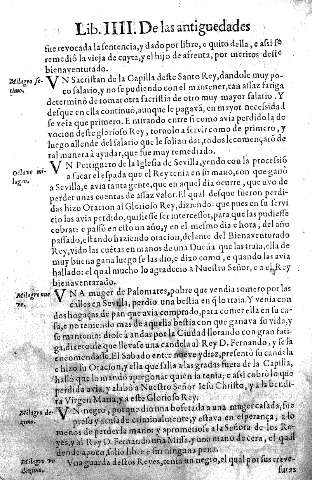 Lib. IIII. De las antiguedades
fue revocada la sentencia, y dado por libre, e quito della, e assi se
remedió la vieja de cuyta, y el hijo de afrenta, por meritos deste
bienaventurado.
Milagro se-
timo.
VN Sacristan de la Capilla deste Santo Rey, dandole muy po-
co salario, y no se pudiendo con el mantener, tan assaz fatiga
determinò de tomar otra sacristia de otro muy mayor salario. Y
desque en ella continuò, aunque le pagavã, en mayor necessidad
se veia que primero. E mirando entre si como avia perdido la de
vocion deste glorioso Rey, tornolo a servir como de primero, y
luego allende del salario que le solian dar, todos le començarõ de
tal manera à ayudar, que fue muy remediado.
Octavo mi-
lagro.
VN Pertiguero de la Iglesia de Sevilla, yendo con la processiõ
a sacar el espada que el Rey tenia en su mano, con que ganò
a Sevilla, e avia tanta gente, que en aquel dia ocurre, que uvo de
perder unas cuentas de assaz valor. El qual desque fueron perdi-
das hizo Oracion al Glorioso Rey, diziendo: que pues en su servi
cio las avia perdido, quisiesse ser intercessor, para que las pudiesse
cobrar: e passò en esto un año, y en el mesmo dia e hora, del año
passado, estando haziendo oracion, delante del Bienaventurado
Rey, vido las cuẽtas en manos de una Dueña que las traia, ella de
muy buena gana luego se las dio, e dizo como, e quando las avia
hallado: el qual mucho lo agradecio a Nuestro Señor, e a el Rey
bienaventurado.
Milagro nue
ve.
VNA muger de Palomares, pobre que vendia romero por las
calles en Sevilla, perdio una bestia en q̃ lo traia. Y venia con
dos hogaças de pan que avia comprado, para comer ella en su ca-
sa, e no teniendo mas de aquella bestia con que ganava su vida, y
se mantenia: diose à andar por la Ciudad llorando con gran fatiga,
ga, dizenle que llevasse una candela al Rey D. Fernando, y se la
encomendasse. El Sabado entre nueve y diez, presentò su candela
e hizo su Oracion, y ella que salia a las gradas fuera de la Capilla,
hallò que lo mandò apregonar quien la tenia; e assi cobrò lo que
perdido avia, y alabò a Nuestro Señor Iesu Christo, y a la bendi-
ta Virgen Maria, y a este Glorioso Rey.
Milagro de-
zimo.
VN negro, porque diò una bofetada a una muger casada, fue
preso y acusado criminalmente, y estava en esperança, a lo
menos de perder la mano: y aprometiose a la Señora de los Re-
yes, y al Rey D. Fernando una Missa, y uno mano de cera, el qual
dende a poco salio libre e sin ninguna pena.
Milagro vn-
dezimo.
Vna guarda destos Reyes, tenia un negro, el qual por sus creve-
suras